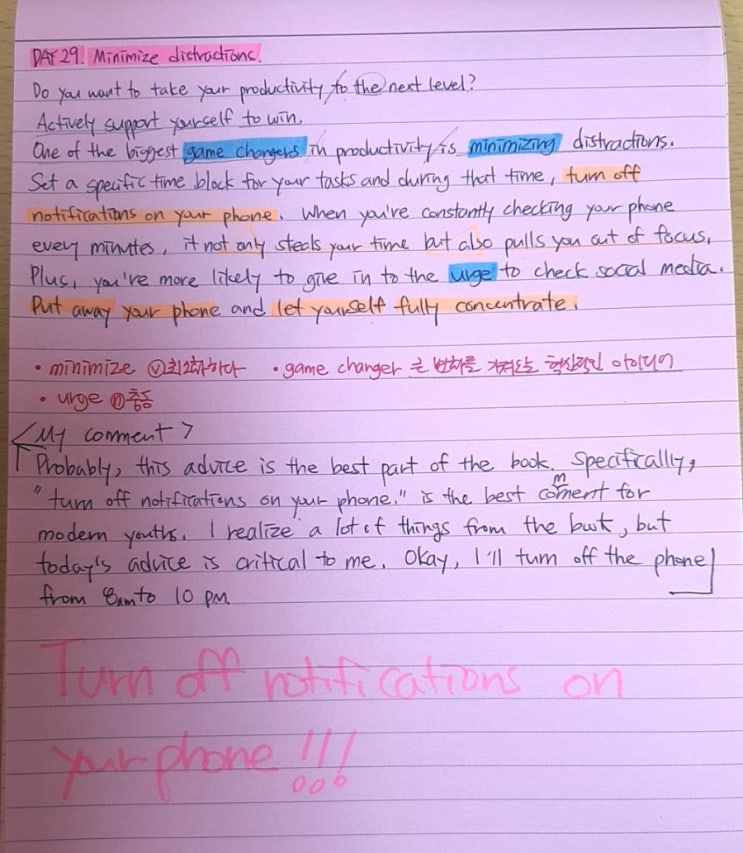 DAY 29. Minimize distractions.
Do you want to take your productivity to the next level?
Actively support yourself to win.
One of the biggest game changers in productivity is minimizing distractions.
Set a specific time block for your tasks and during that time, turn off
notifications on your phone. When you're constantly checking your phone
every minutes, it not only steals your time but also pulls you out of focus.
Plus, you're more likely to give in to the urge to check social media.
Put away your phone and let yourself fully concentrate.
• minimize ⓥ최소화하다 • game changer 큰 변화를 가져오는 혁신적인 아이디어
• urge ⓝ충동
<My comment>
Probably, this advice is the best part of the book. Specifically,
"turn off notifications on your phone." is the best comment for
modern youths. I realize a lot of things from the book, but
today's advice is critical to me. Okay, I'll turn off the phone
from 8am to 10 pm.
Turn off notifications on
your phone!!!